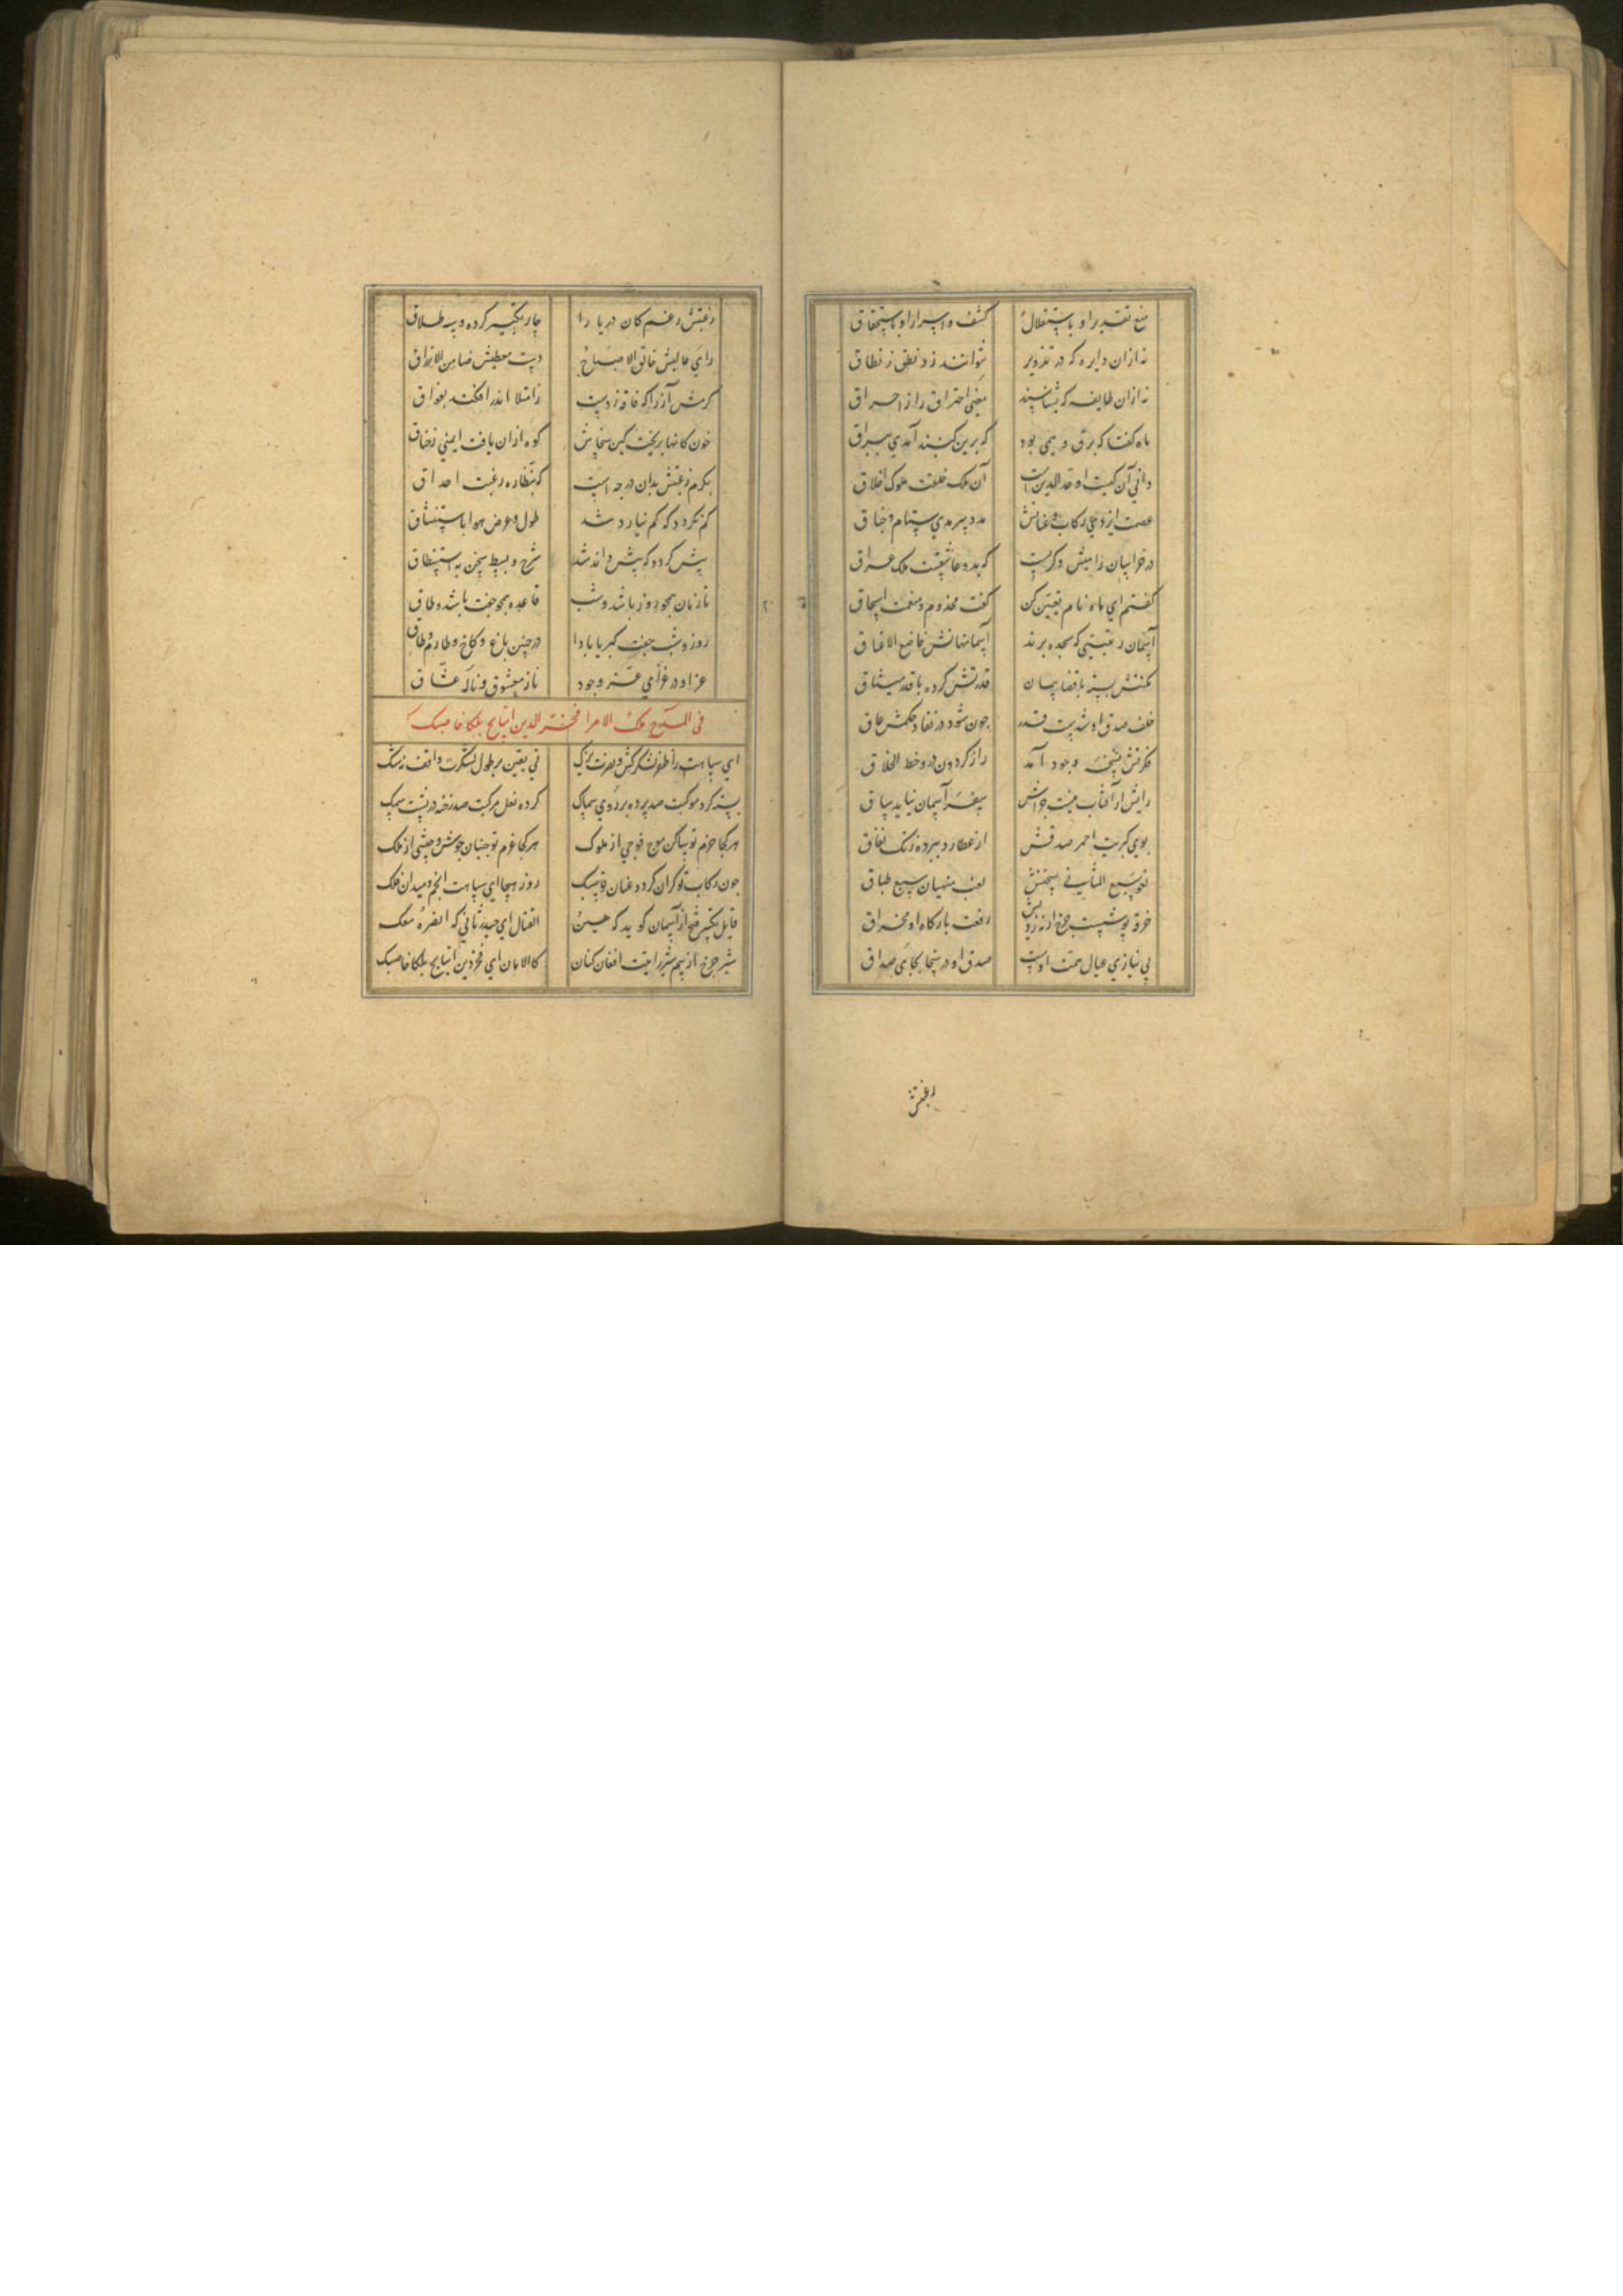 منع تقدیر او باستقلال کشف اسرار او باستحقاق
نه ازان دایره که در تدویر نتوانند زد نطق ز نطاق
نه ازان طایفه که نشناسند معنی احتراق را از احراق
ماه گفتا که برق وهمی بود که برین گنبد آمدی ببراق
دانی آن کیست اوحد الدین است آن ملک خلقت ملوک اخلاق
عصمت ایزدی رکاب و عنانش مدد سرمدی ستام و جناق
در خراسان ز امتش دگریست که بدو عاشقست ملک عراق
گفتم ای ماه نام تعیین کن گفت مخدوم و منعمت اسحاق
آسمان رتبتی که سجده برند آسمانهاش خاضع الاعناق
مکنتش بسته با قضا پیمان قدرتش کرده با قدر میثاق
خلف صدق او شدست قدر چون شود در نفاذ حکمش عاق
فکرتش نسختی وجود آمد راز گردون درو خط الحاق
رایش ار آفتاب نیست چراش سفر آسمان نیاید شاق
بوی کبریت احمر صدقش از عطارد ببرده رنگ نفاق
نغمه سبع المثانی سخنش لعب منهیان سبع طباق
خرقه پوشیست چرخ ارنه زدیش رفعت بارگاه او مخراق
بی نیازی عیال همت اوست صدق او در سخا بجای صداق
رغبتش
رغبتش رغم کان و دریا را چار تکبیر کرده و سه طلاق
رای عالیش فالق الاصباح دست معطیش ضامن الارزاق
کرمش آز را که فاقه زدست ز امتلا اندر افکند بفواق
خون کانها بریخت کین سخاش کوه ازان یافت ایمنی ز خناق
بکرم رغبتش بدان درجه است که بنظاره رغبت احداق
کم نگردد که کم نیارد شد طول و عرض هوا باستنشاق
پیش گردد که پیش داند شد شرح و بسط سخن به استنطاق
تا زمان همچو روز باشد و شب قاعده همچو جفت باشد و طاق
روز و شب جفت کبریا بادا در چنین باغ و کاخ و طارم و طاق
عز او در غزای عز وجود ناز معشوق و ناله عشاق
فی المدح ملک الامرا فخر الدین اینانج بلکا خاصبک
ای سپاهت را ظفر لشکرکش و نصرت یزک نی یقین بر طول لشکرت واقف نه شک
بسته گرد موکبت صد پرده بر روی سماک کرده نعل مرکبت صد رخنه در پشت سمک
هر کجا حزم تو ساکن موج فوجی از ملوک هر کجا عزم تو جنبان جوش جیشی از ملک
چون رکاب تو گران گردد عنان تو سبک روز هیجا ای سپاهت انجم و میدان فلک
قابل تکبیر فتح از آسمان گوید که هین القتال ای حیدر ثانی که النصرة معک
شیر چرخ از بیم شیر رایتت افغان کنان کالامان ای فخر دین اینانج بلکا خاصبک